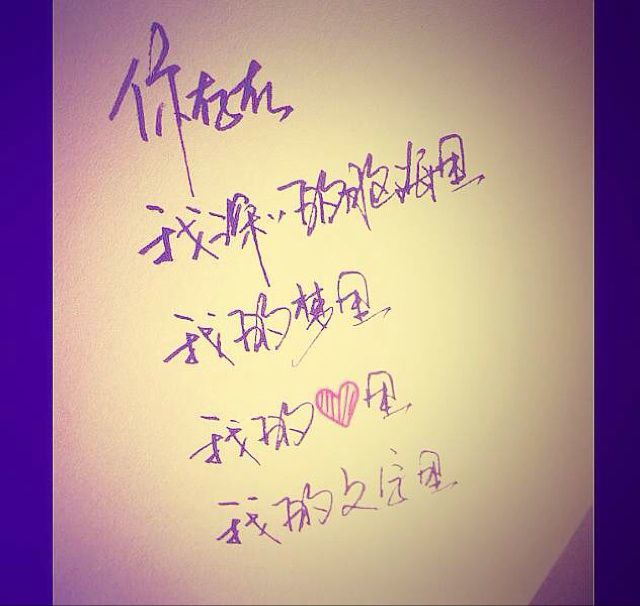 你存在
我深深的脑海里
我的梦里
我的♥里
我的文
里